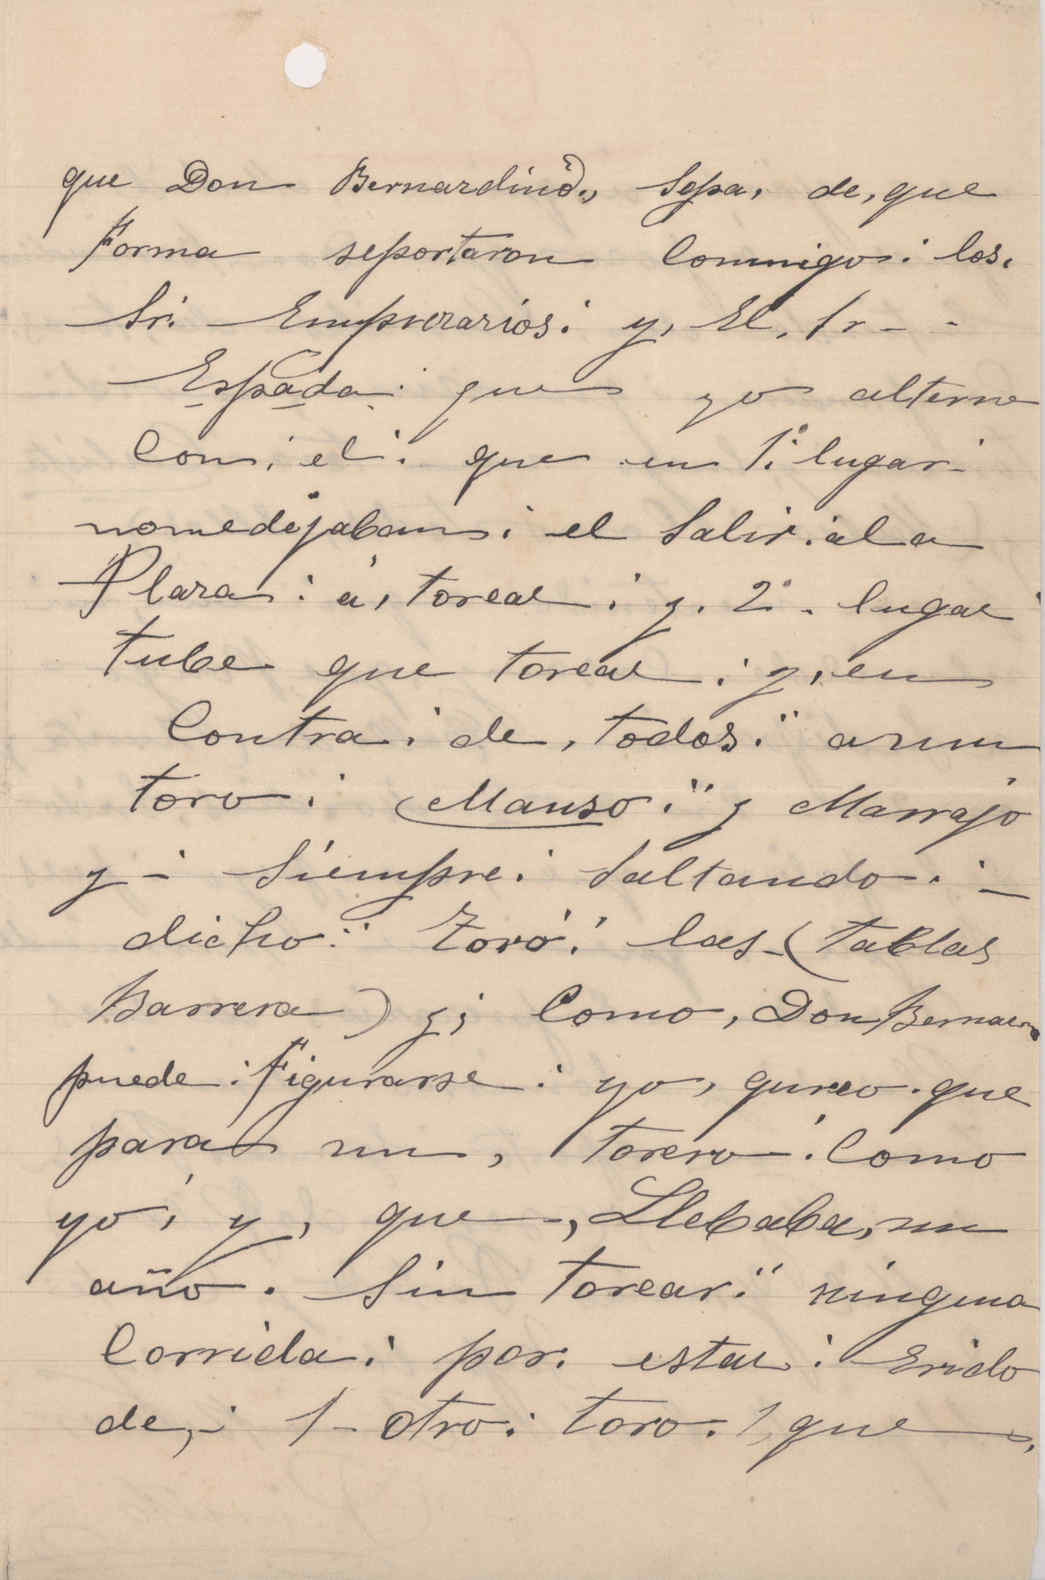 que Don Bernardino., Sepa, de, que
Forma seportaron Conmigo: los.
Sr. Emprezarios: y, El, 1r - -
Espada: que yo alterne
Con, el: que en 1º lugar
nomedejaban: el Salir. ala
Plaza: á, torear: y. 2º. lugar
tube que torear: y, en
Contra: de, todos:" a un
toro: (Manso:" y Marrajo
y - Siempre: Saltando.: -
dicho:" Toró: las (tablas
Barrera) y; Como, Don Bernar
puede: Figurarse: yo, que
para un, torero: Como
yó, y, que -, Llebaba, un
año. Sin torear:" ninguna
Corrida: por. estar: Erido
de,- 1 - otro: toro. 1, que